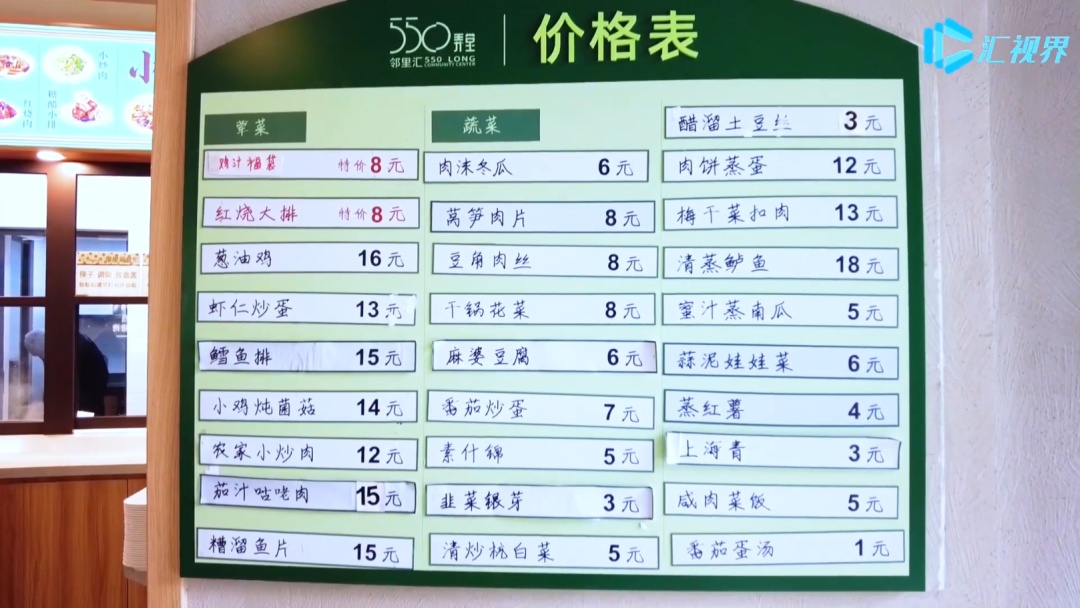 550 弄里
邻里汇 550 LONG
COMMUNITY CENTER
价格表
汇视界
荤菜
鸡汁福袋 特价 8 元
红烧大排 特价 8 元
葱油鸡 16 元
虾仁炒蛋 13 元
鳕鱼排 15 元
小鸡炖菌菇 14 元
农家小炒肉 12 元
茄汁咕咾肉 15 元
糟溜鱼片 15 元
蔬菜
肉沫冬瓜 6 元
莴笋肉片 8 元
豆角肉丝 8 元
干锅花菜 8 元
麻婆豆腐 6 元
番茄炒蛋 7 元
素什锦 5 元
韭菜银芽 3 元
清炒杭白菜 5 元
醋溜土豆丝 3 元
肉饼蒸蛋 12 元
梅干菜扣肉 13 元
清蒸鲈鱼 18 元
蜜汁蒸南瓜 5 元
蒜泥娃娃菜 6 元
蒸红薯 4 元
上海青 3 元
咸肉菜饭 5 元
番茄蛋汤 1 元
小炒肉
红烧肉
糖醋小排
小